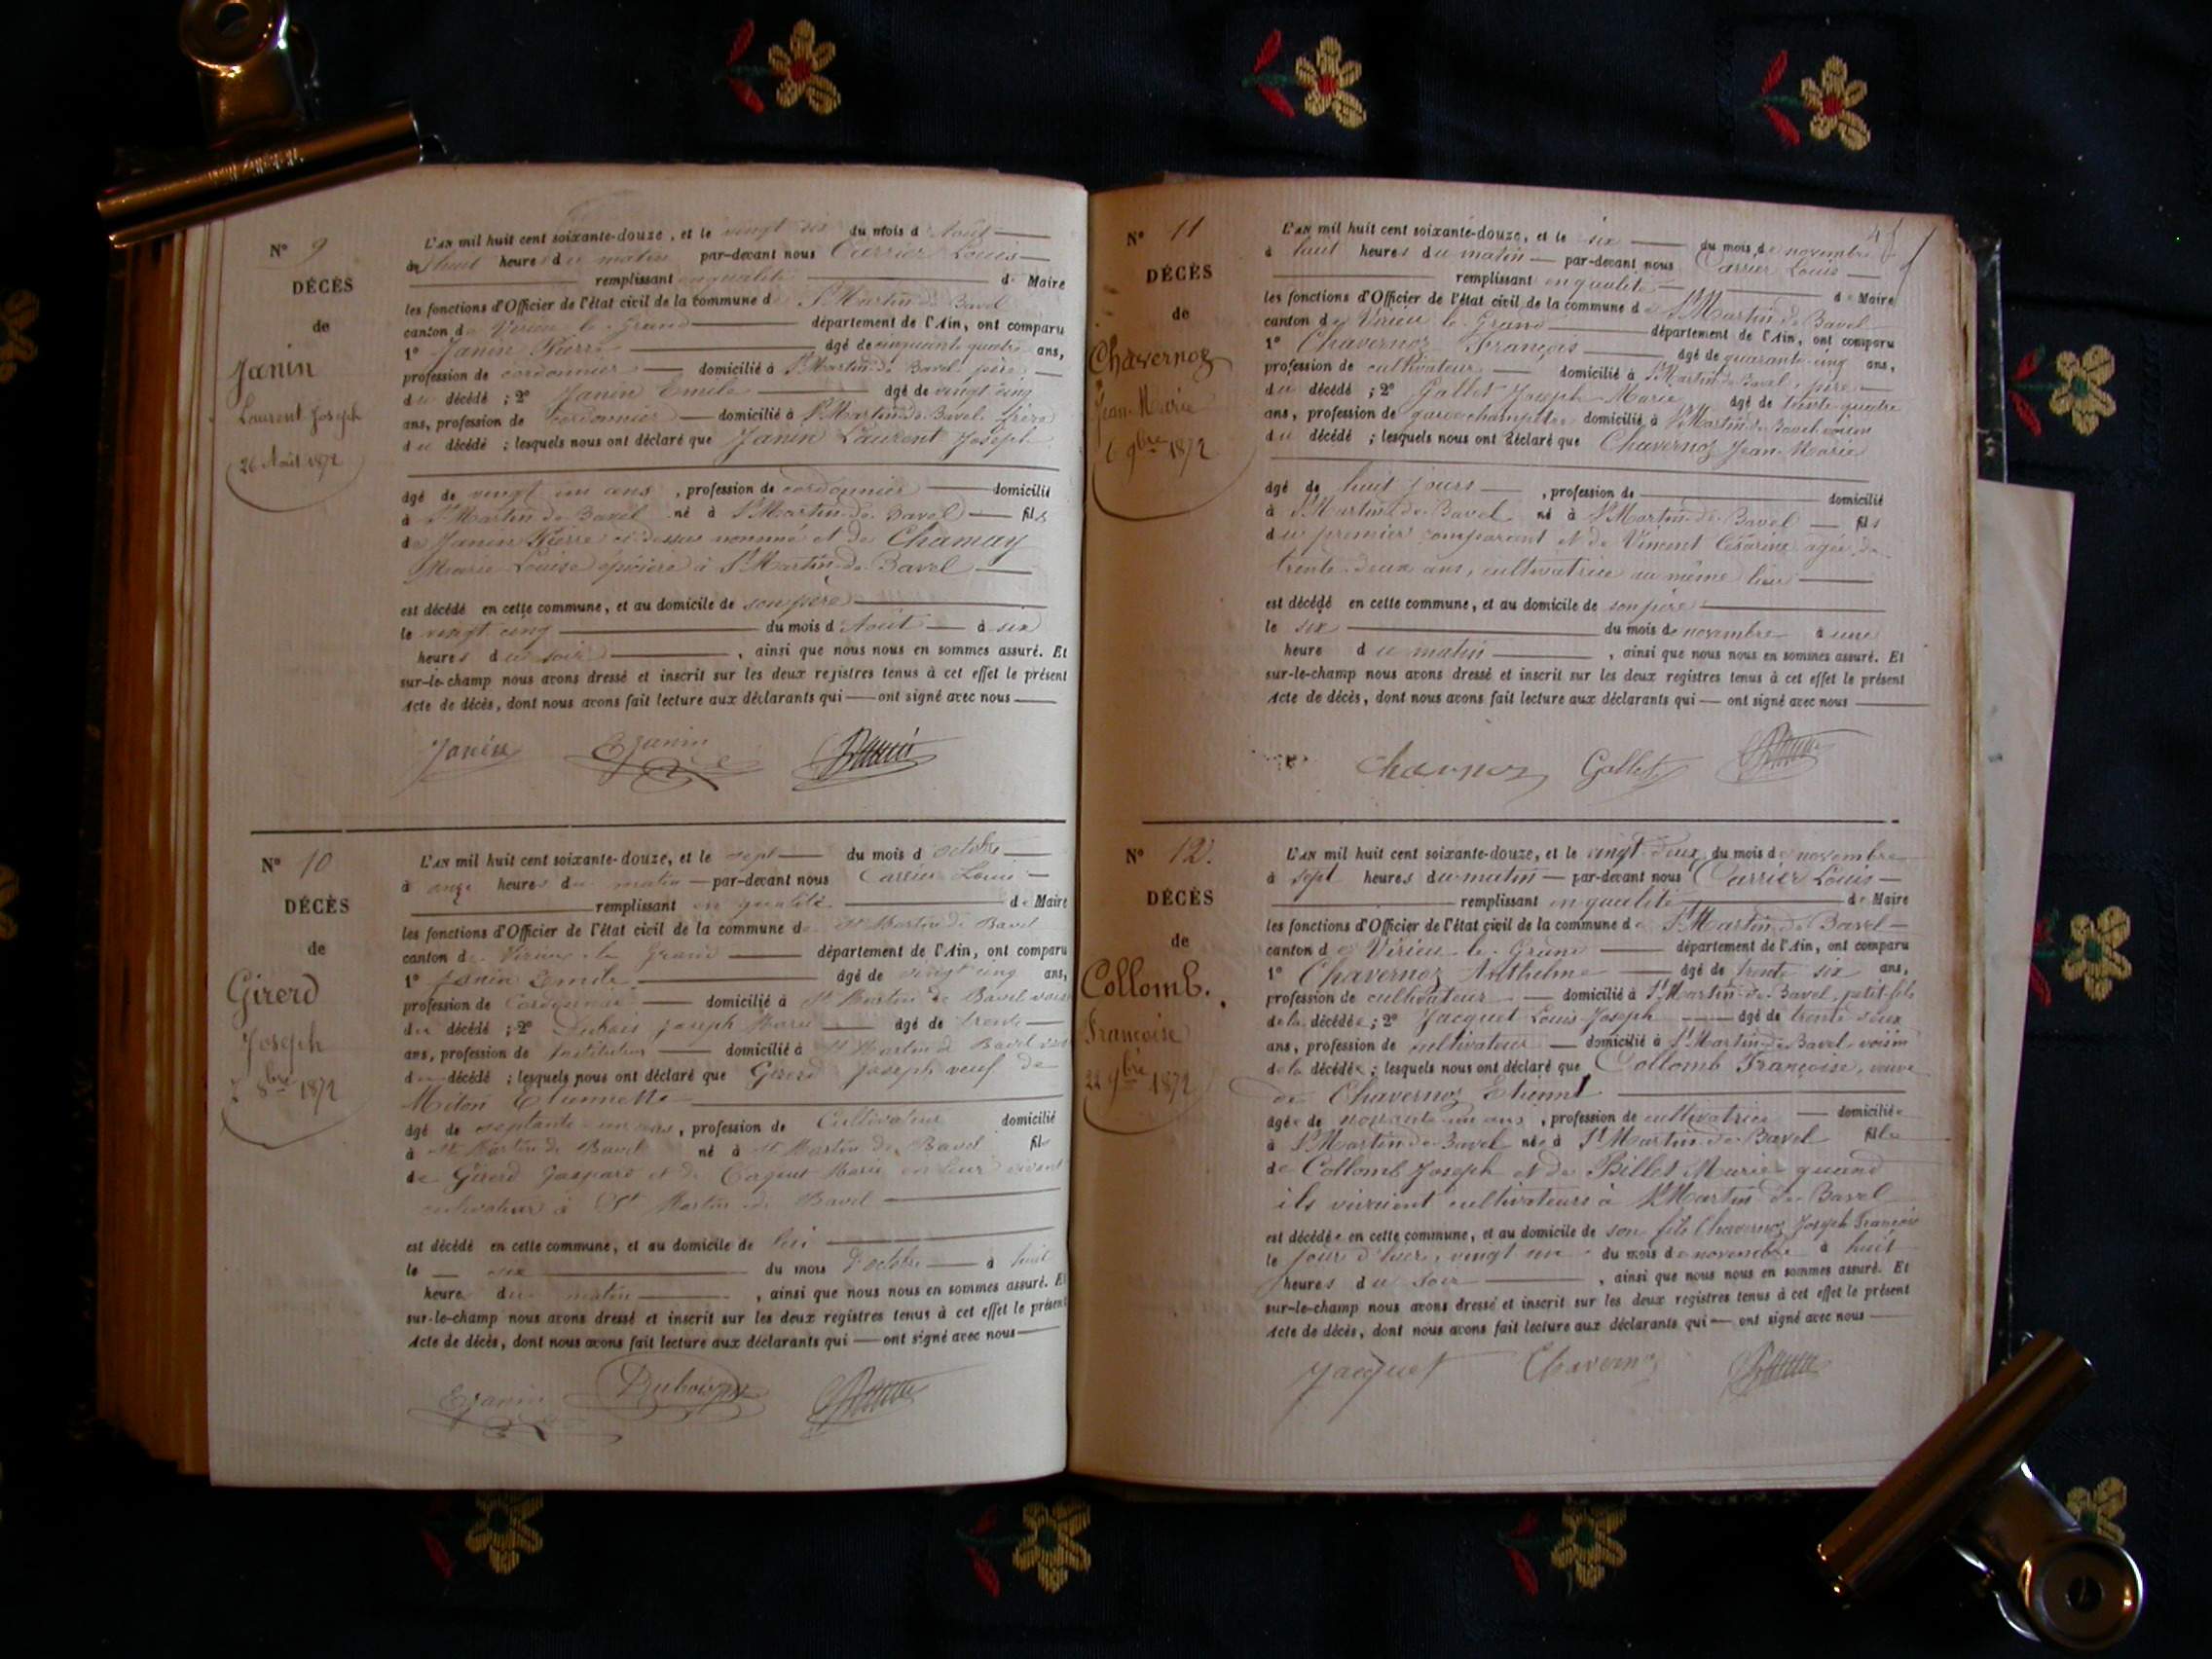 N° 9
DÉCÈS
de
Janin
Laurent Joseph
26 Août 1872
L'AN mil huit cent soixante-douze, et le vingt six du mois d'Août
à huit heures du matin par-devant nous Carrier Louis
remplissant en qualité de Maire
les fonctions d'Officier de l'état civil de la commune de St Martin de Bavel
canton de Virieu le Grand département de l'Ain, ont comparu
1° Janin Pierre âgé de cinquante quatre ans,
profession de cordonnier domicilié à St Martin de Bavel père
du décédé ; 2° Janin Emile âgé de vingt cinq
ans, profession de cordonnier domicilié à St Martin de Bavel frère
du décédé ; lesquels nous ont déclaré que Janin Laurent Joseph
âgé de vingt un ans, profession de cordonnier domicilié
à St Martin de Bavel né à St Martin de Bavel fils
de Janin Pierre ci dessus nommé et de Chamay
Marie Louise épicière à St Martin de Bavel
est décédé en cette commune, et au domicile de son père
le vingt cinq du mois d'Août à six
heures du soir, ainsi que nous nous en sommes assuré. Et
sur-le-champ nous avons dressé et inscrit sur les deux registres tenus à cet effet le présent
Acte de décès, dont nous avons fait lecture aux déclarants qui ont signé avec nous
Janin EJanin
N° 10
DÉCÈS
de
Girerd
Joseph
7 8bre 1872
L'AN mil huit cent soixante-douze, et le sept du mois d'octobre
à onze heures du matin par-devant nous Carrier Louis
remplissant en qualité de Maire
les fonctions d'Officier de l'état civil de la commune de St Martin de Bavel
canton de Virieu le Grand département de l'Ain, ont comparu
1° Janin Emile âgé de vingt cinq ans,
profession de Cordonnier domicilié à St Martin de Bavel voisin
du décédé ; 2° Dubois Joseph Marie âgé de trente
ans, profession de Instituteur domicilié à St Martin de Bavel
du décédé ; lesquels nous ont déclaré que Girerd Joseph veuf de
Miton Etiennette
âgé de septante-un ans, profession de Cultivateur domicilié
à St Martin de Bavel né à St Martin de Bavel fils
de Girerd Gaspard et de Marie en leur vivant
cultivateur à St Martin de Bavel
est décédé en cette commune, et au domicile de lui
le six du mois d'octobre à huit
heure du matin, ainsi que nous nous en sommes assuré. Et
sur-le-champ nous avons dressé et inscrit sur les deux registres tenus à cet effet le présent
Acte de décès, dont nous avons fait lecture aux déclarants qui ont signé avec nous
EJanin Dubois
N° 11
DÉCÈS
de
Chavernoz
Jean-Marie
6 9bre 1872
L'AN mil huit cent soixante-douze, et le six du mois de novembre
à huit heures du matin par-devant nous Carrier Louis
remplissant en qualité de Maire
les fonctions d'Officier de l'état civil de la commune de St Martin de Bavel
canton de Virieu le Grand département de l'Ain, ont comparu
1° Chavernoz François âgé de quarante cinq ans,
profession de cultivateur domicilié à St Martin de Bavel, père
du décédé ; 2° Gallet Joseph Marie âgé de trente quatre
ans, profession de garde champêtre domicilié à St Martin de Bavel voisin
du décédé ; lesquels nous ont déclaré que Chavernoz Jean-Marie
âgé de huit jours, profession de domicilié
à St Martin de Bavel né à St Martin de Bavel fils
du premier comparant et de Vincent Césarine agée de
trente-deux ans, cultivatrice au même lieu
est décédé en cette commune, et au domicile de son père
le six du mois de novembre à une
heure du matin, ainsi que nous nous en sommes assuré. Et
sur-le-champ nous avons dressé et inscrit sur les deux registres tenus à cet effet le présent
Acte de décès, dont nous avons fait lecture aux déclarants qui ont signé avec nous
Gallet
N° 12.
DÉCÈS
de
Collomb.
Françoise
22 9bre 1872
L'AN mil huit cent soixante-douze, et le vingt deux du mois de novembre
à sept heures du matin par-devant nous Carrier Louis
remplissant en qualité de Maire
les fonctions d'Officier de l'état civil de la commune de St Martin de Bavel
canton de Virieu le Grand département de l'Ain, ont comparu
1° Chavernoz Anthelme âgé de trente six ans,
profession de cultivateur domicilié à St Martin de Bavel, petit-fils
de la décédée ; 2° Jacquet Louis Joseph âgé de trente deux
ans, profession de cultivateur domicilié à St Martin de Bavel, voisin
de la décédée ; lesquels nous ont déclaré que Collomb Françoise, veuve
de Chavernoz Etienne
âgée de nonante un ans, profession de cultivatrice domiciliée
à St Martin de Bavel née à St Martin de Bavel fille
de Collomb Joseph et de Billet Marie quand
ils vivaient cultivateurs à St Martin de Bavel
est décédée en cette commune, et au domicile de son fils Chavernoz Joseph François
le jour d'hier, vingt un du mois de novembre à huit
heures du soir, ainsi que nous nous en sommes assuré. Et
sur-le-champ nous avons dressé et inscrit sur les deux registres tenus à cet effet le présent
Acte de décès, dont nous avons fait lecture aux déclarants qui ont signé avec nous
Jacquet Chavernoz